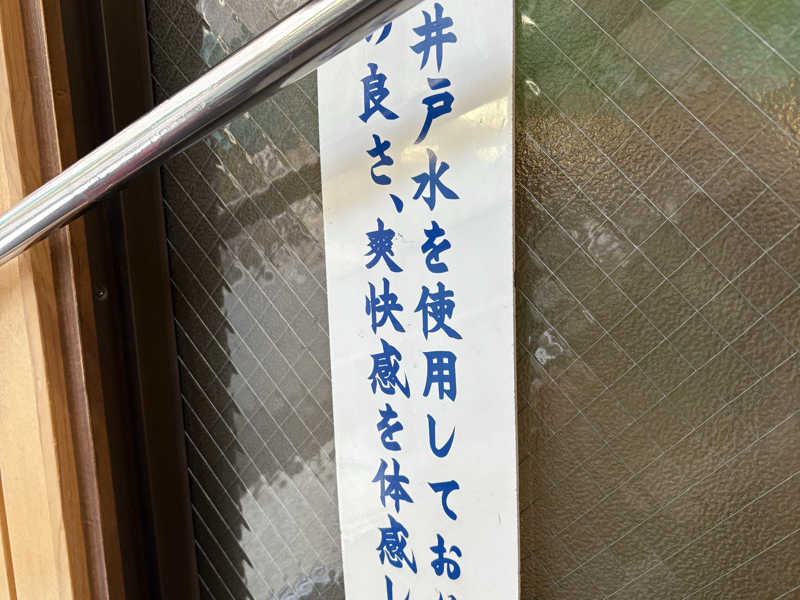 井戸水を使用してお
の良さ、爽快感を体感し